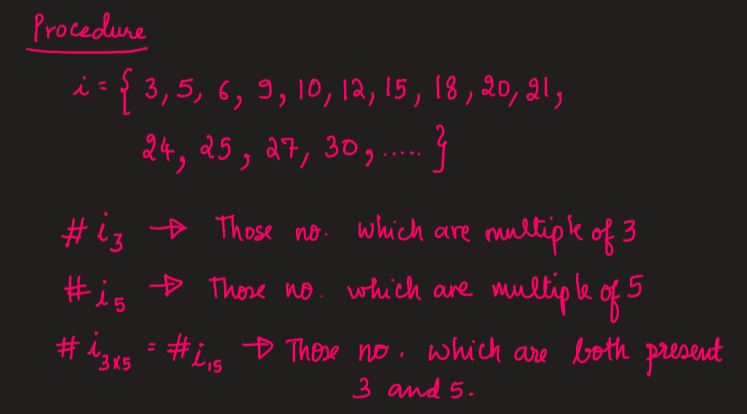 Procedure
i = { 3, 5, 6, 9, 10, 12, 15, 18, 20, 21,
24, 25, 27, 30, ..... }
# i₃ → Those no. which are multiple of 3
# i₅ → Those no. which are multiple of 5
# i₃ₓ₅ = # i₁₅ → Those no. which are both present
3 and 5.